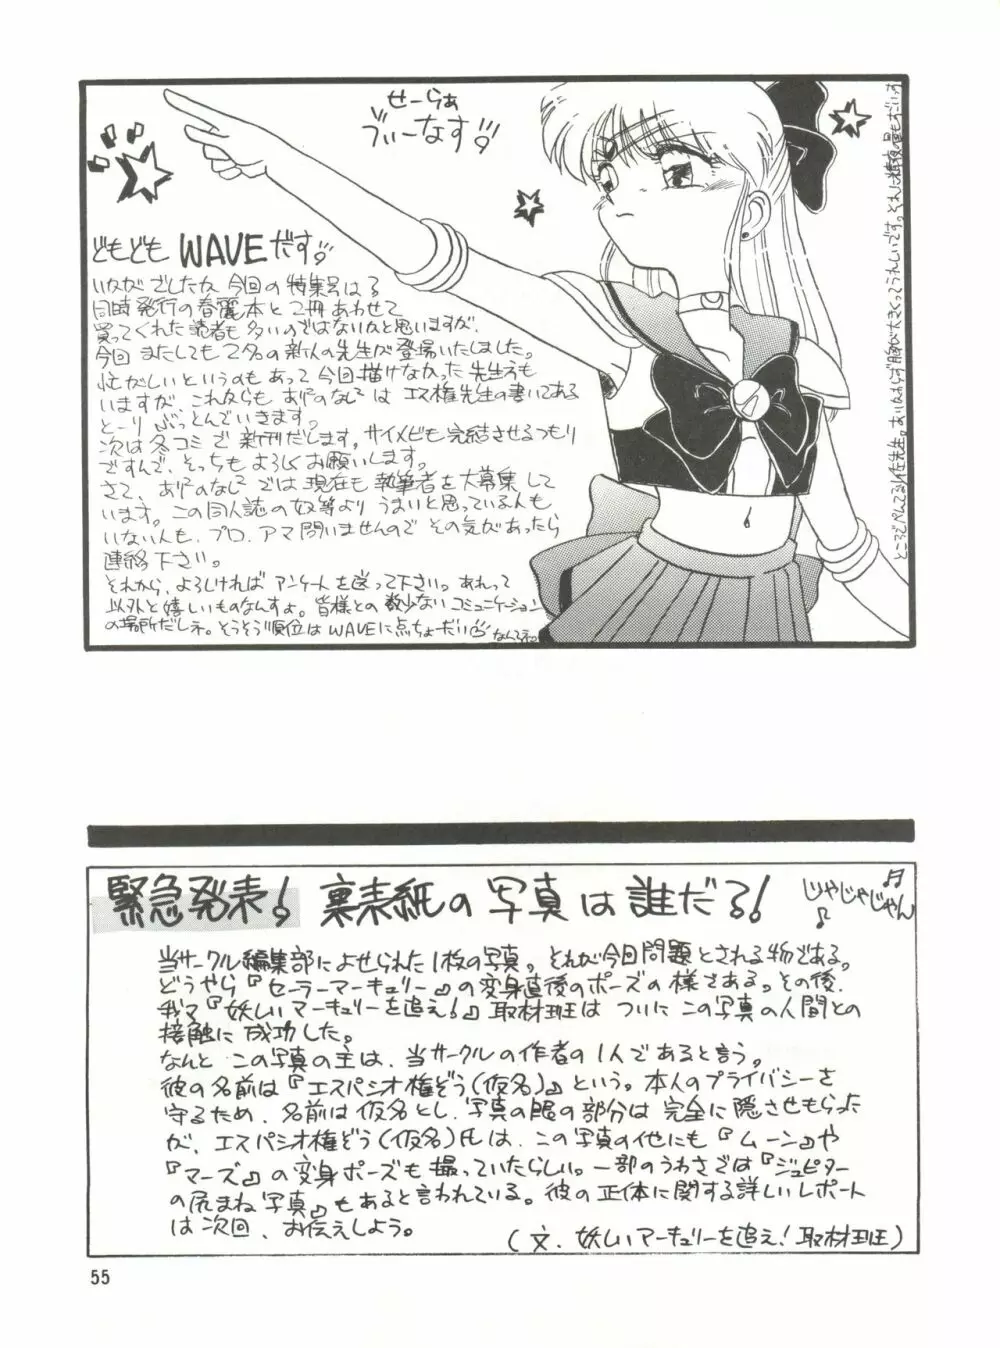 せーらぁ
ゔぃーなす!!
どもども WAVEだす!!
いかがでしたか 今回の特集号は?
同時発行の春麗本と2冊あわせて
買ってくれた読者も多いのではないかと思いますが、
今回またしても2名の新人の先生が登場いたしました。
忙がしいというのもあって今回描けなかった先生方も
いますが、これからもありのなしは エス権先生の書いてある
とーり ぶっとんでいきます。
次は冬コミで新刊だします。サイメビも完結させるつもり
ですんで、そっちもよろしくお願いします。
さて、ありのなしでは現在も執筆者を大募集して
います。この同人誌の奴等よりうまいと思っている人も
いない人も、プロ、アマ問いませんのでその気があったら
連絡下さい。
それから、よろしければアンケートを送って下さい。あれって
以外と嬉しいものなんすよ。皆様との数少ないコミュニケーション
の場所だしネ。そうそう順位はWAVEに点ちょーだい なんてネ
緊急発表! 裏表紙の写真は誰だ?!
じゃじゃじゃん
当サークル編集部によせられた1枚の写真。それが今回問題とされる物である。
どうやら『セーラーマーキュリー』の変身直後のポーズの様である。その後、
我々『妖しいマーキュリーを追え!』取材班はついにこの写真の人間との
接触に成功した。
なんと この写真の主は、当サークルの作者の1人であると言う。
彼の名前は『エスパシオ権ぞう(仮名)』という。本人のプライバシーを
守るため、名前は仮名とし、写真の眼の部分は完全に隠させもらった
が、エスパシオ権ぞう(仮名)氏は、この写真の他にも『ムーン』や
『マーズ』の変身ポーズも撮っていたらしい。一部のうわさでは『ジュピター
の尻まね写真』もあると言われている。彼の正体に関する詳しいレポート
は次回、お伝えしよう。
(文、妖しいマーキュリーを追え!取材班)
55